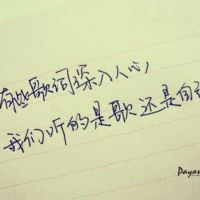 有些歌词深入人心
我们听的是歌还是自
Paya